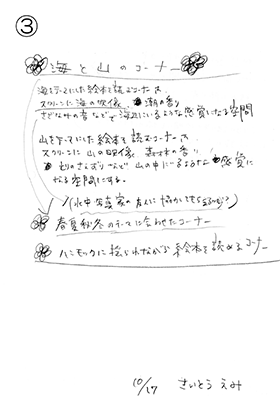 ③
海と山のコーナー
海をテーマにした絵本を読むコーナーで、
スクリーンに海の映像、潮の香り
さざなみの音などで海辺にいるような感覚になる空間
山をテーマにした絵本を読むコーナーで、
スクリーンに山の映像、森林の香り
鳥のさえずりなど山の中にいるような感覚に
なる空間にする。
(水中写真家の友人に協力してもらう
春夏秋冬のテーマに合わせたコーナー
ハンモックに揺られながら絵本を読めるコーナー
10/17 さいとうえみ